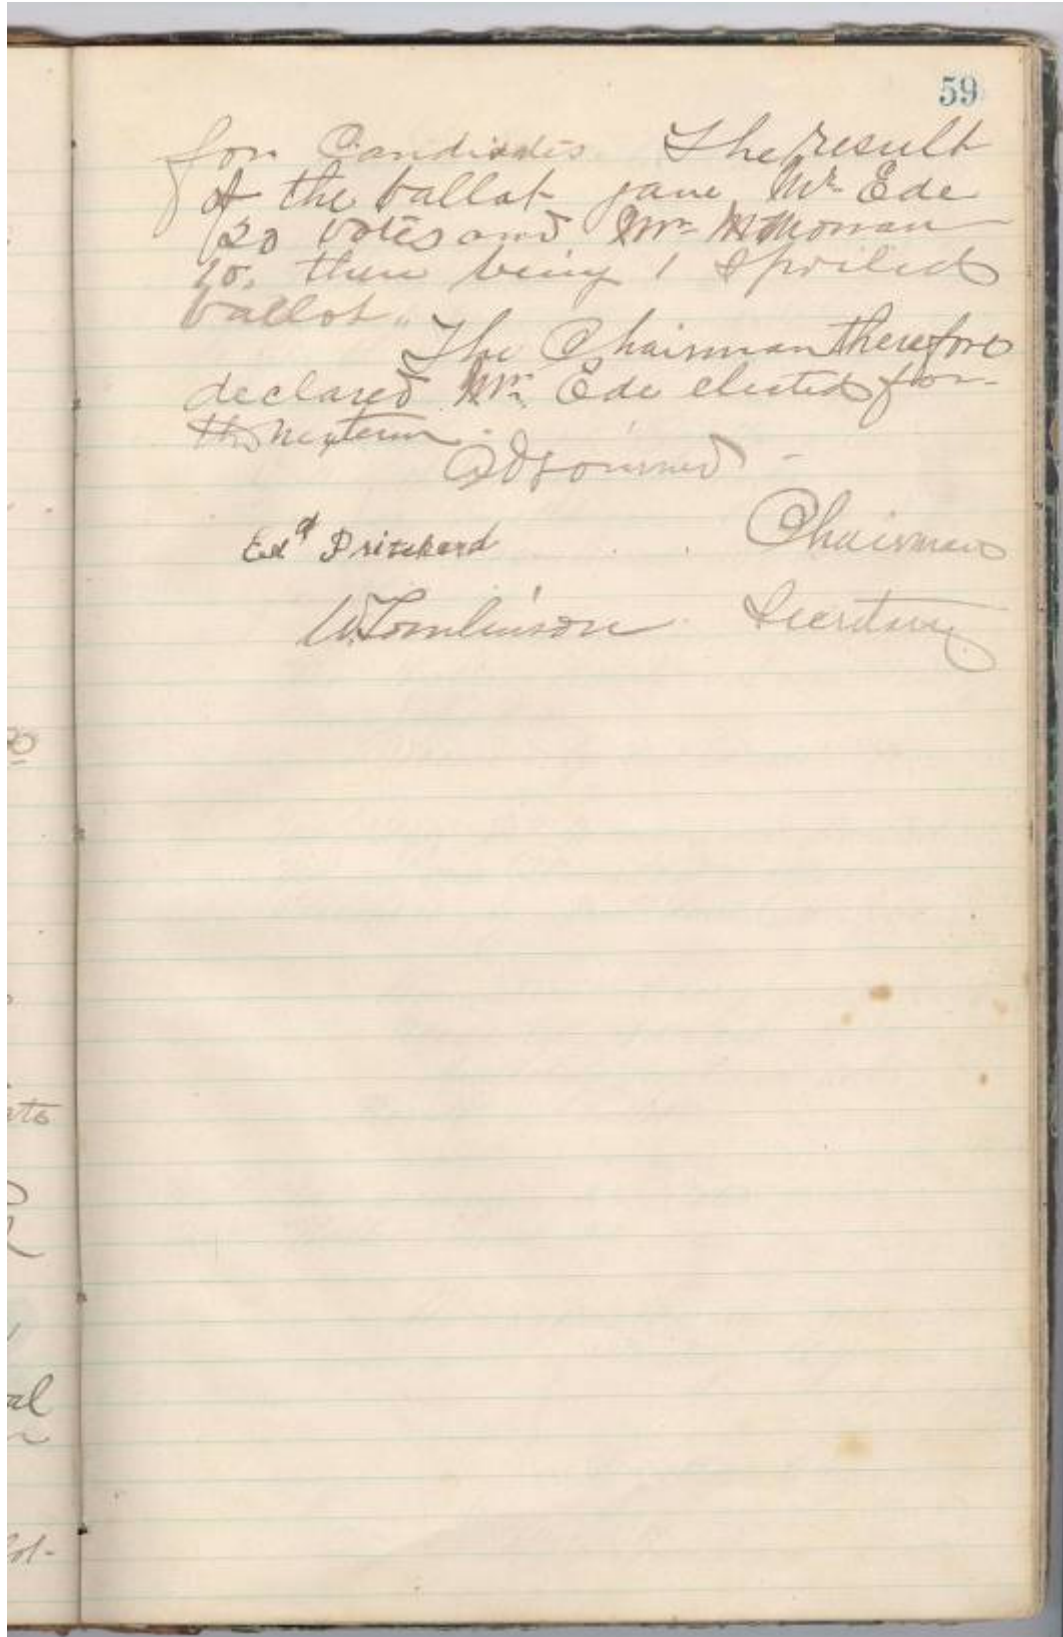 59
for Candidates. The result
of the ballot gave Mr Ede
20 votes and Mr
10, there being 1 spoiled
ballot.
The Chairman therefore
declared Mr. Ede elected for
the next term.
Adjourned -
Edd Pritchard Chairman
W. Tomlinson Secretary